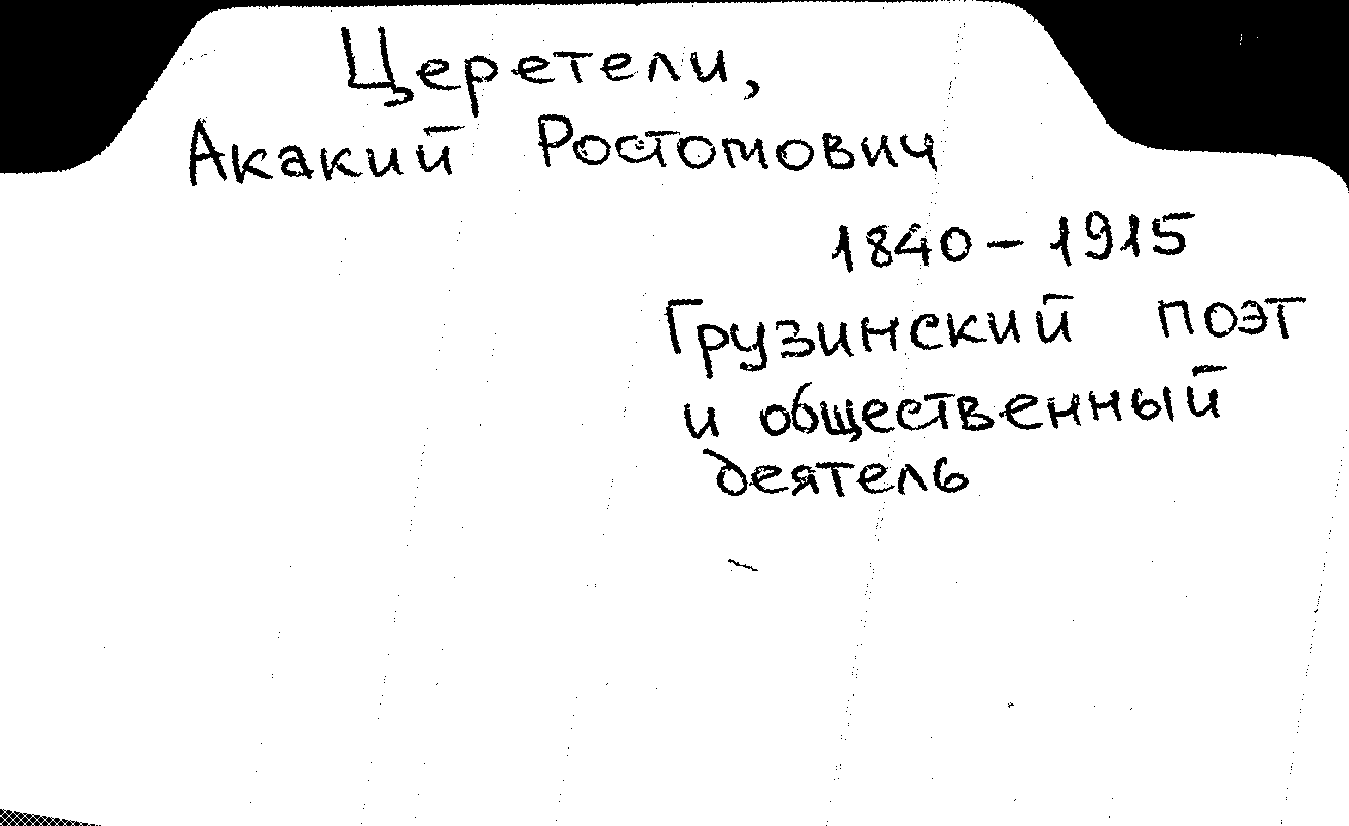 Церетели,
Акакий Ростомович
1840-1915
Грузинский поэт
и общественный
деятель